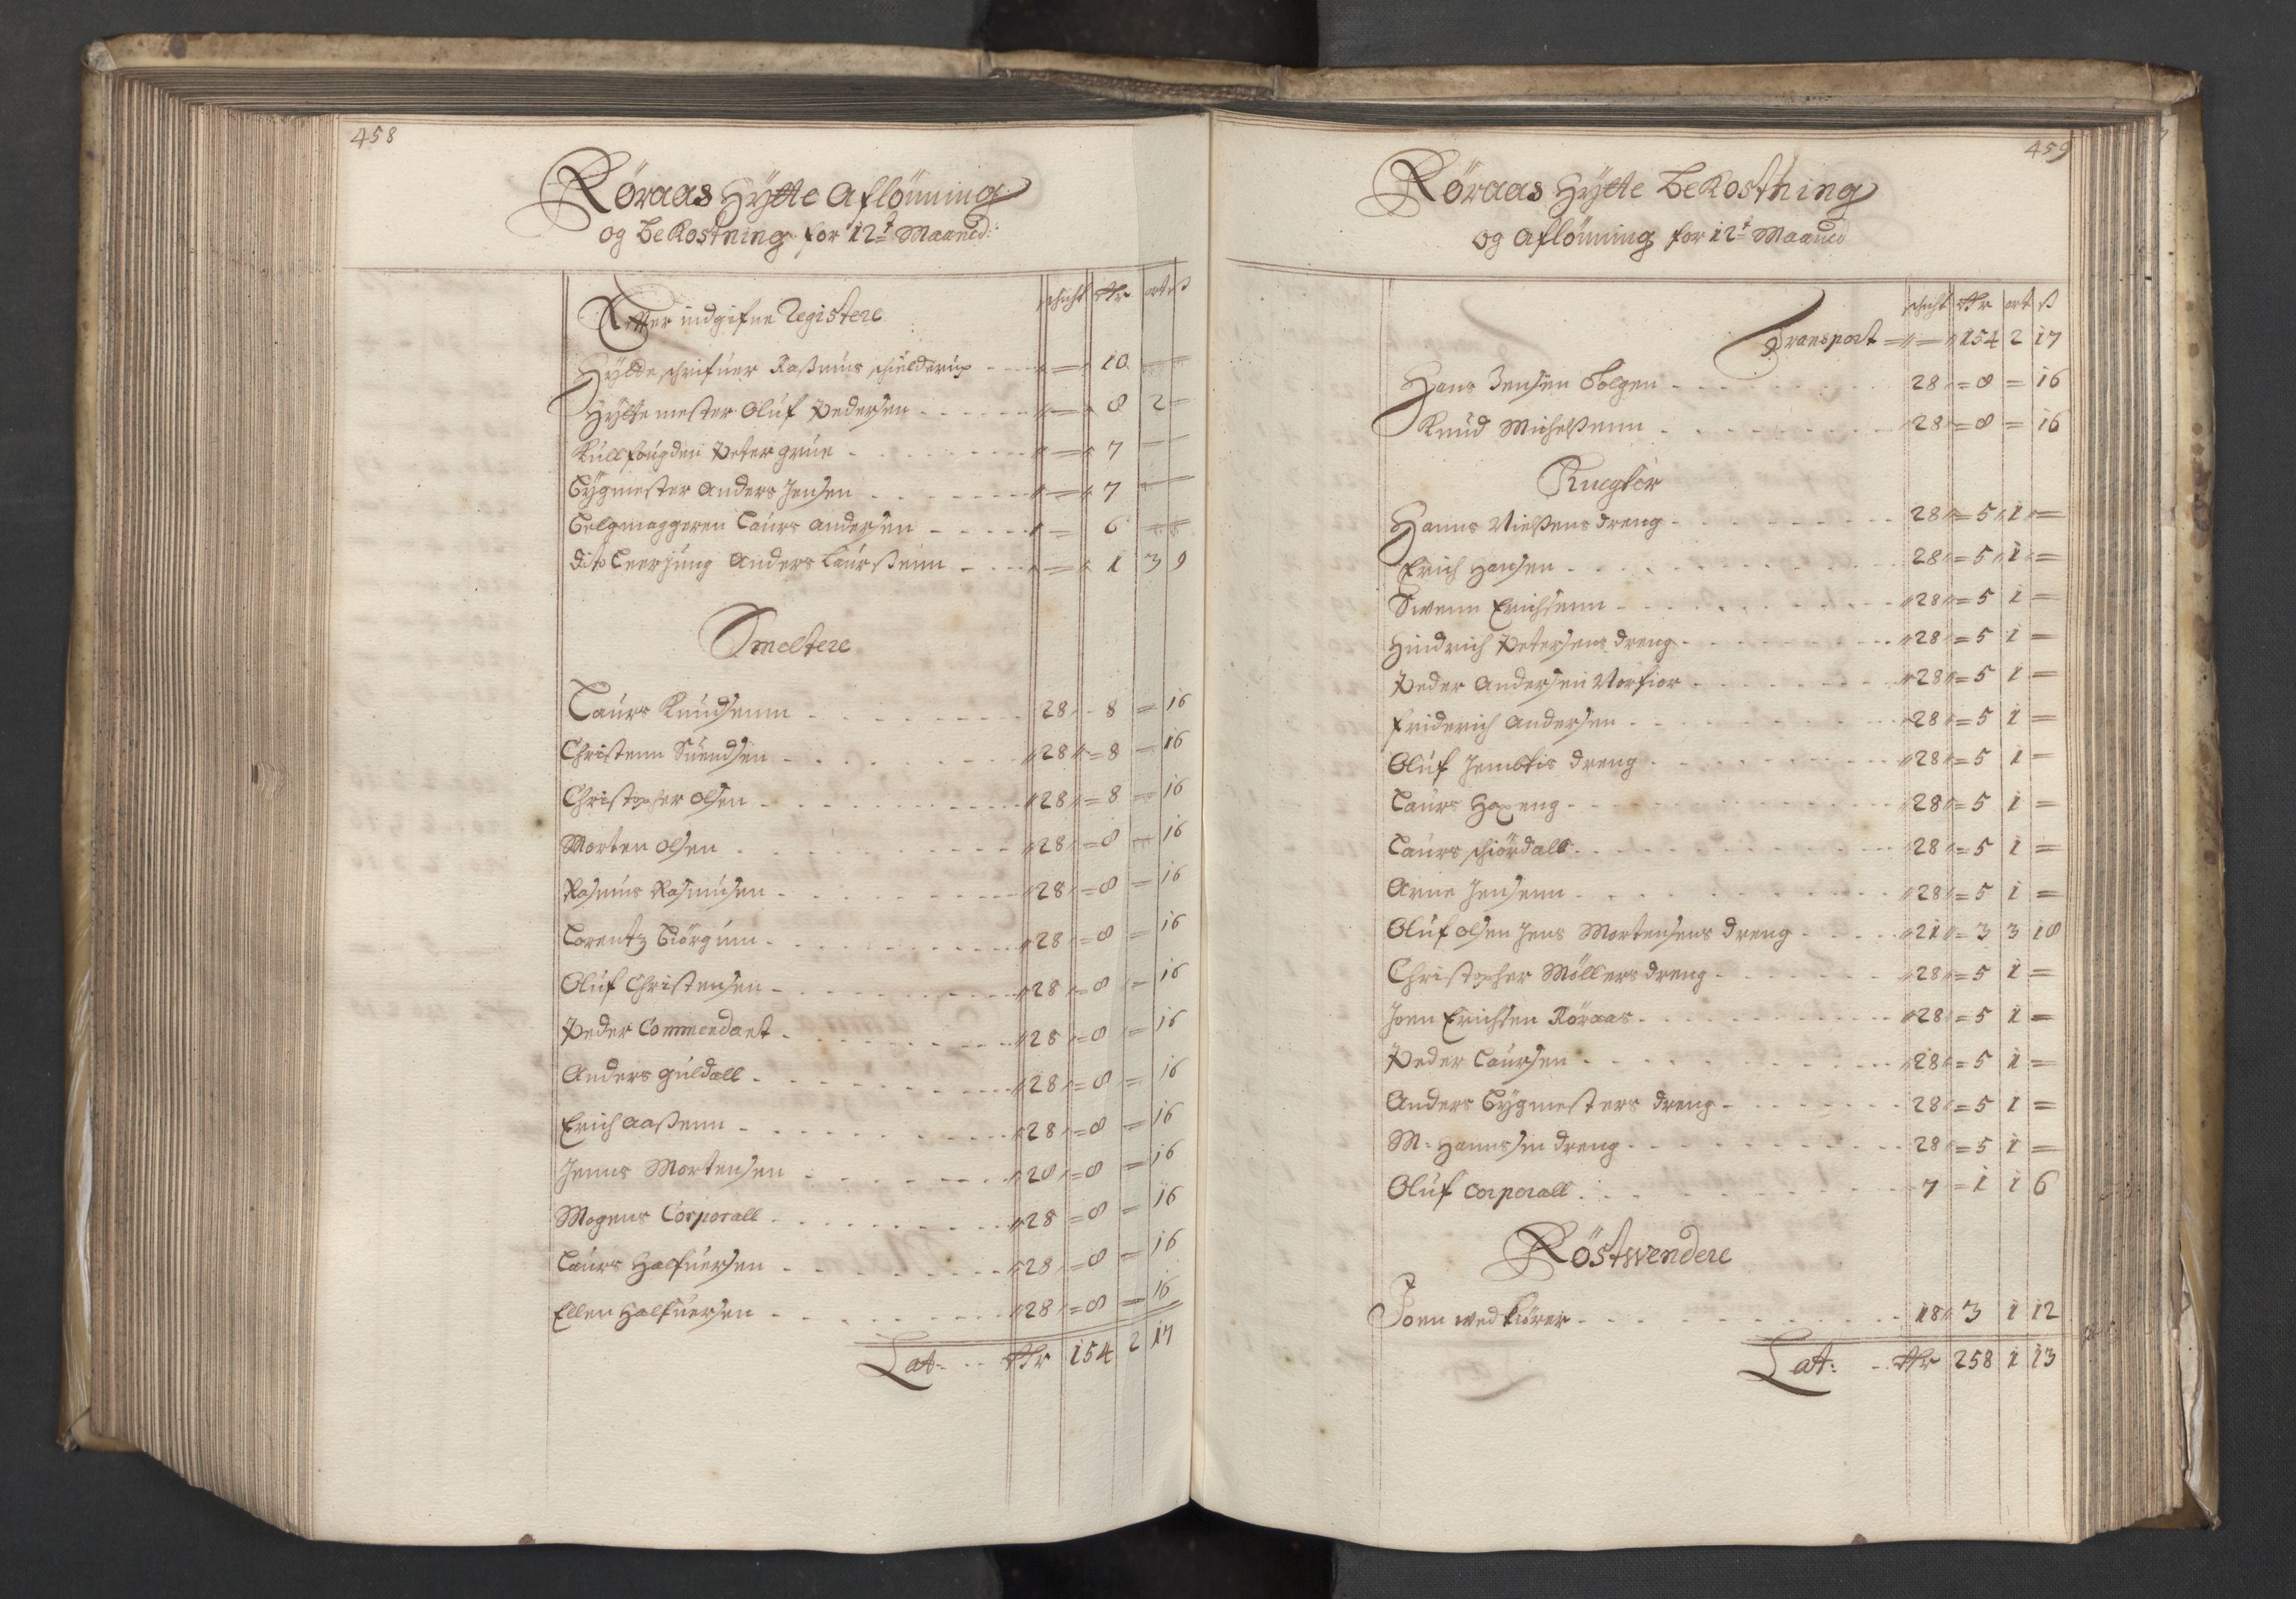 458
Røraas Hÿtte Aflönning
og Bekostning for 12t Maaned:
Effter indgifne Registere schicht Rdr ort ß
Hÿtteschrifuer Raßmus Schielderup - - " = " 10
Hÿttemester Oluf Pedersen - - " = " 8 2 -
Kullfougden Peter Grue - - " = " 7 -
Bÿgmester Anders Jensen - - " = " 7 -
Belgmaggeren Laurs Andersen - - " = 6 =
Dito Leerjung Anders Laurßenn - - " = " 1 3 9
Smeltere
Laurs Knudsenn - - 28 - 8 = 16
Christenn Suendsen - - 28 = 8 = 16
Christopher Olsen - - 28 = 8 = 16
Morten Olsen - - 28 = 8 = 16
Rasmus Rasmusen - - 28 = 8 = 16
Lorentz Biörgum - - 28 = 8 = 16
Oluf Christensen - - 28 = 8 = 16
Peder Commendant - - 28 = 8 = 16
Anders Guldall - - 28 = 8 = 16
Erich Aaßenn - - 28 = 8 = 16
Jenns Mortensen - - 28 = 8 = 16
Mogens Corporall - - 28 = 8 = 16
Laurs Halfuersen - - 28 = 8 = 16
Ellen Halfuersen - - 28 = 8 = 16
Lat: - - Rdr 154 2 17
459
Røraas Hÿtte Bekostning
og Aflönning for 12t Maaned
schicht Rdr ort ß
Transport = " = " 154 2 17
Hans Jensen Bolgen - - 28 = 8 = 16
Knud Michelßenn - - 28 = 8 = 16
Knegter
Hanns Nielßens dreng - - 28 = 5 1 =
Erich Hansen - - 28 = 5 1 =
Swenn Erichsenn - - 28 = 5 1 =
Hindrich Petersens dreng - - 28 = 5 1 =
Peder Andersen - - 28 = 5 1 =
Friderich Andersen - - 28 = 5 1 =
Oluf Jembtis dreng - - 28 = 5 1 =
Laurs Hoxeng - - 28 = 5 1 =
Laurs Schiördall - - 28 = 5 1 =
Arne Jensenn - - 28 = 5 1 =
Oluf Olsen Jens Mortensens dreng - - 21 = 3 3 18
Christopher Möllers dreng - - 28 = 5 1 =
Joen Erichsen Röraas - - 28 = 5 1 =
Peder Laursen - - 28 = 5 1 =
Anders Bÿgmesters dreng - - 28 = 5 1 =
M: Hannssen dreng - - 28 = 5 1 =
Oluf Corporall - - 7 = 1 1 6
Röstwendere
Joen wedkiörer - - 18 3 1 12
Lat: - - Rdr 258 1 13